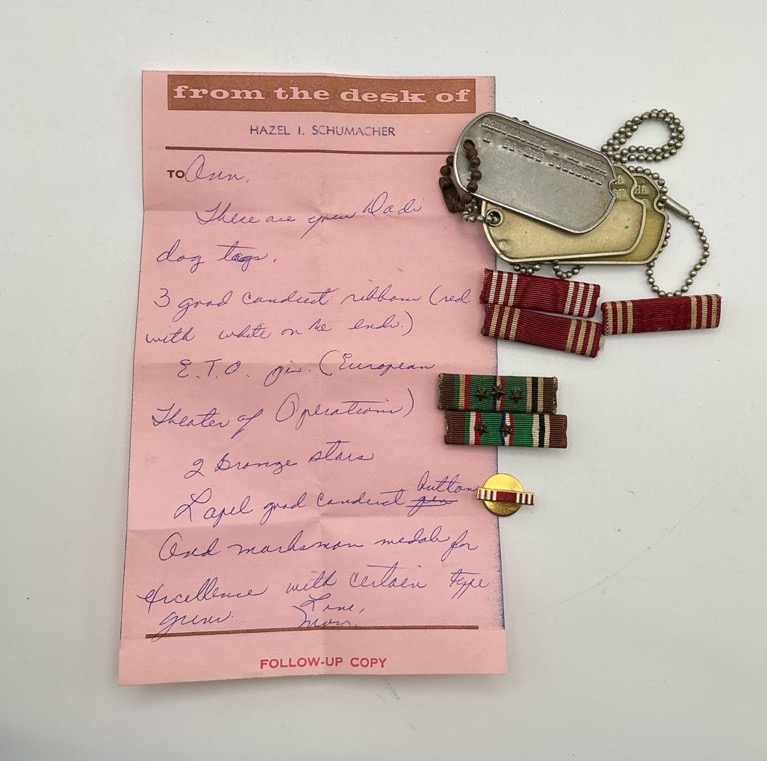 from the desk of
HAZEL I. SCHUMACHER
TO Ann,
These are your Dads
dog tags.
3 good conduct ribbons (red
with white on the ends.)
E.T.O. (European
Theater of Operations)
2 Bronze stars
Lapel good conduct pin button
And marksman medals for
excellence with certain type
guns. Love,
Mom.
FOLLOW-UP COPY